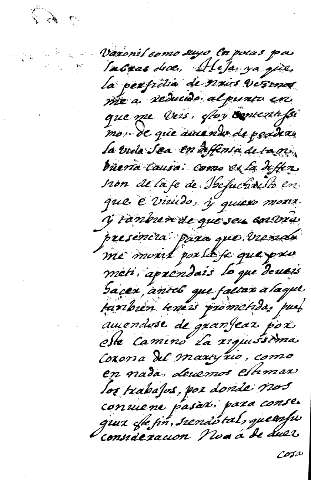 varonil como suyo en pocas pa
labras dice, Hija, ya que
la perfidia de nros vezinos
me a reducido, al punto en
que me veis, estoy contentissi
mo, de que aviendo de perder
la vida sea en deffensa de tan
buena causa: como es la deffen
sion de la fe de Jhesuchristo en
que e vivido, y quiero morir
y tambien de que sea en vra
presencia: para que, viendo
me morir por la fe que pro
meti, aprendais lo que deveis
hacer, antes que faltar a la que
tambien teneis prometida, pues
aviendose de grangear por
este camino la riquissima
corona del martyrio, como
en nada, devemos estimar
los trabajos, por donde nos
conviene pasar: para conse
guir este fin, siendo tal, que en su
consideracion no a de aver
cosa